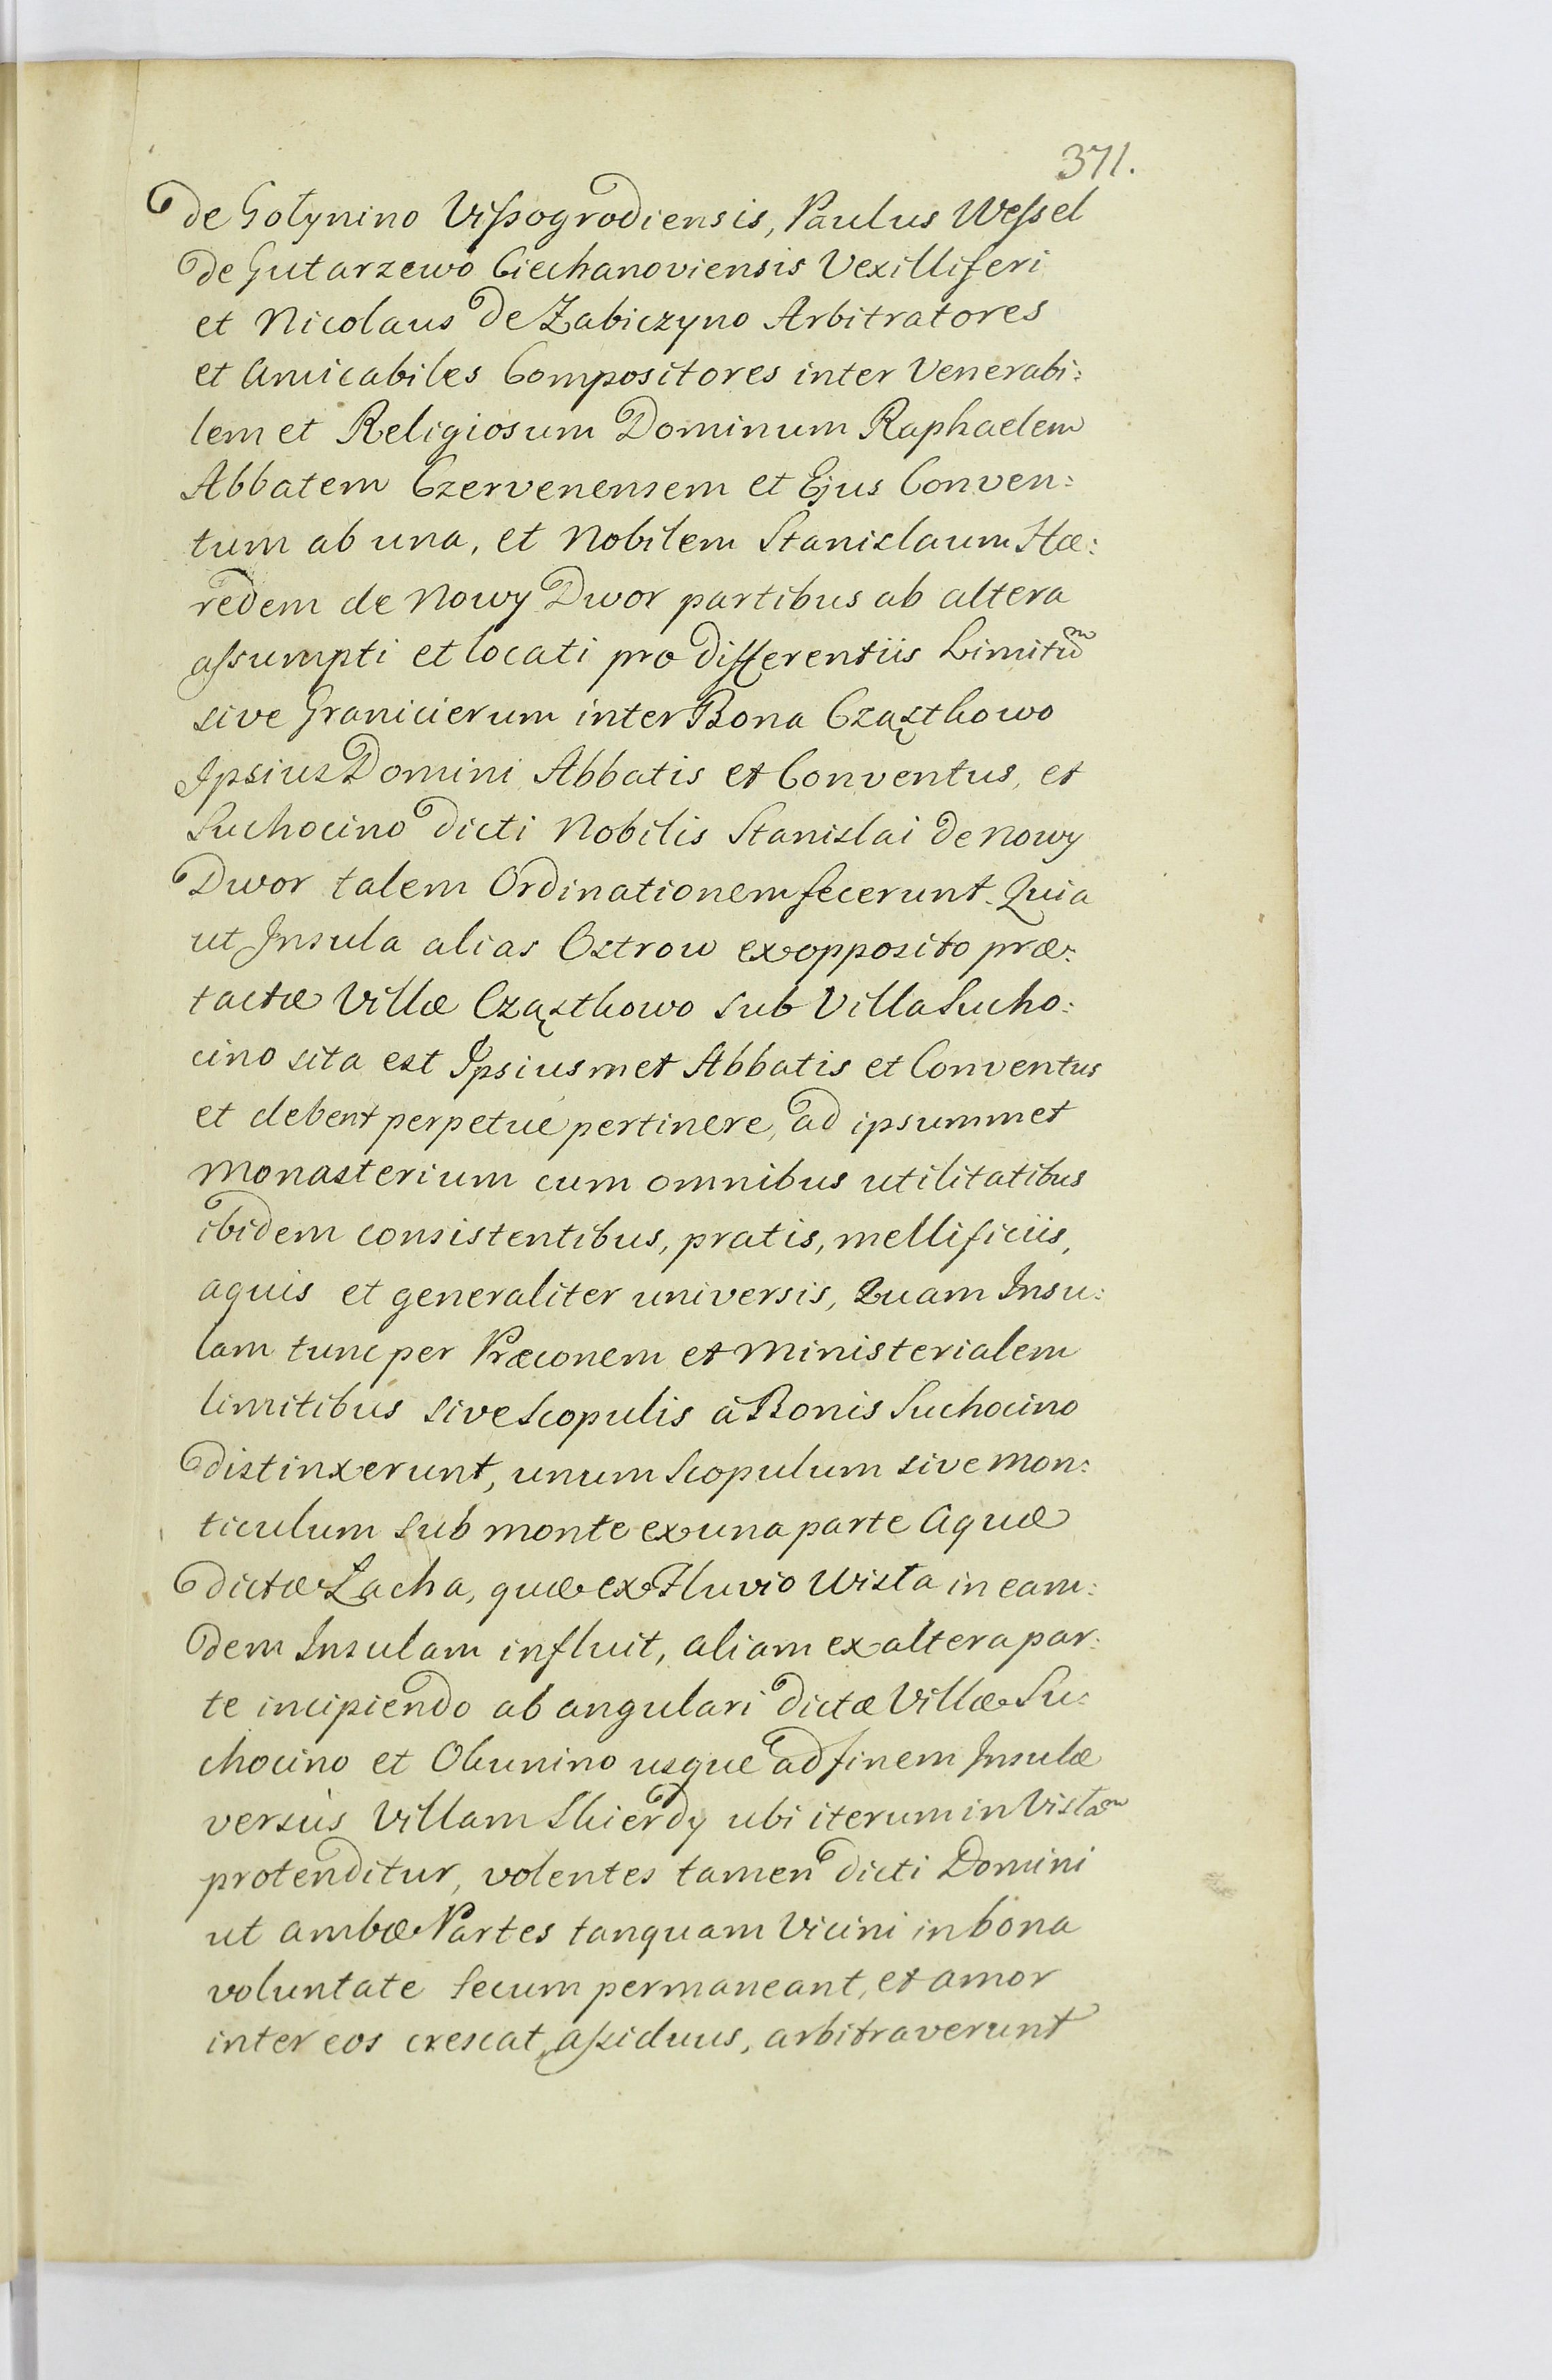 371.
de Gołynino Vissogrodiensis, Paulus Wessel
de Gutarzewo Ciechanoviensis Vexilliferi
et Nicolaus de Zabiczyno Arbitratores
et Amicabiles Compositores inter Venerabi:
lem et Religiosum Dominum Raphaelem
Abbatem Czervenensem et Ejus Conven:
tum ab una, et Nobilem Stanislaum Hæ:
redem de Nowy Dwor partibus ab altera
assumpti et locati pro differentiis Limitũm
sive Granicierum inter Bona Cząsthowo
Ipsius Domini Abbatis et Conventus, et
Suchocino dicti Nobilis Stanislai de Nowy
Dwor talem Ordinationem fecerunt. Quia
ut Insula alias Ostrow ex opposito præ:
tactæ Villæ Cząsthowo sub Villa Sucho:
cino sita est Ipsiusmet Abbatis et Conventus
et debent perpetue pertinere, ad ipsummet
Monasterium cum omnibus utilitatibus
ibidem consistentibus, pratis, mellificiis,
aquis et generaliter universis, Quam Insu:
lam tunc per Præconem et Ministerialem
limitibus sive Scopulis à Bonis Suchocino
distinxerunt, unum Scopulum sive Mon:
ticulum sub monte ex una parte Aquæ
dictæ Łacha, quæ ex Fluvio Wisła in eam:
dem Insulam influit, aliam ex altera par:
te incipiendo ab angulari dictæ Villæ Su:
chocino et Olunino usque ad finem Insulæ
versùs Villam Skierdy ubi iterum in Vislam
protenditur, volentes tamen dicti Domini
ut ambæ Partes tanquam Vicini in bona
voluntate secum permaneant, et amor
inter eos crescat, assiduus, arbitraverunt